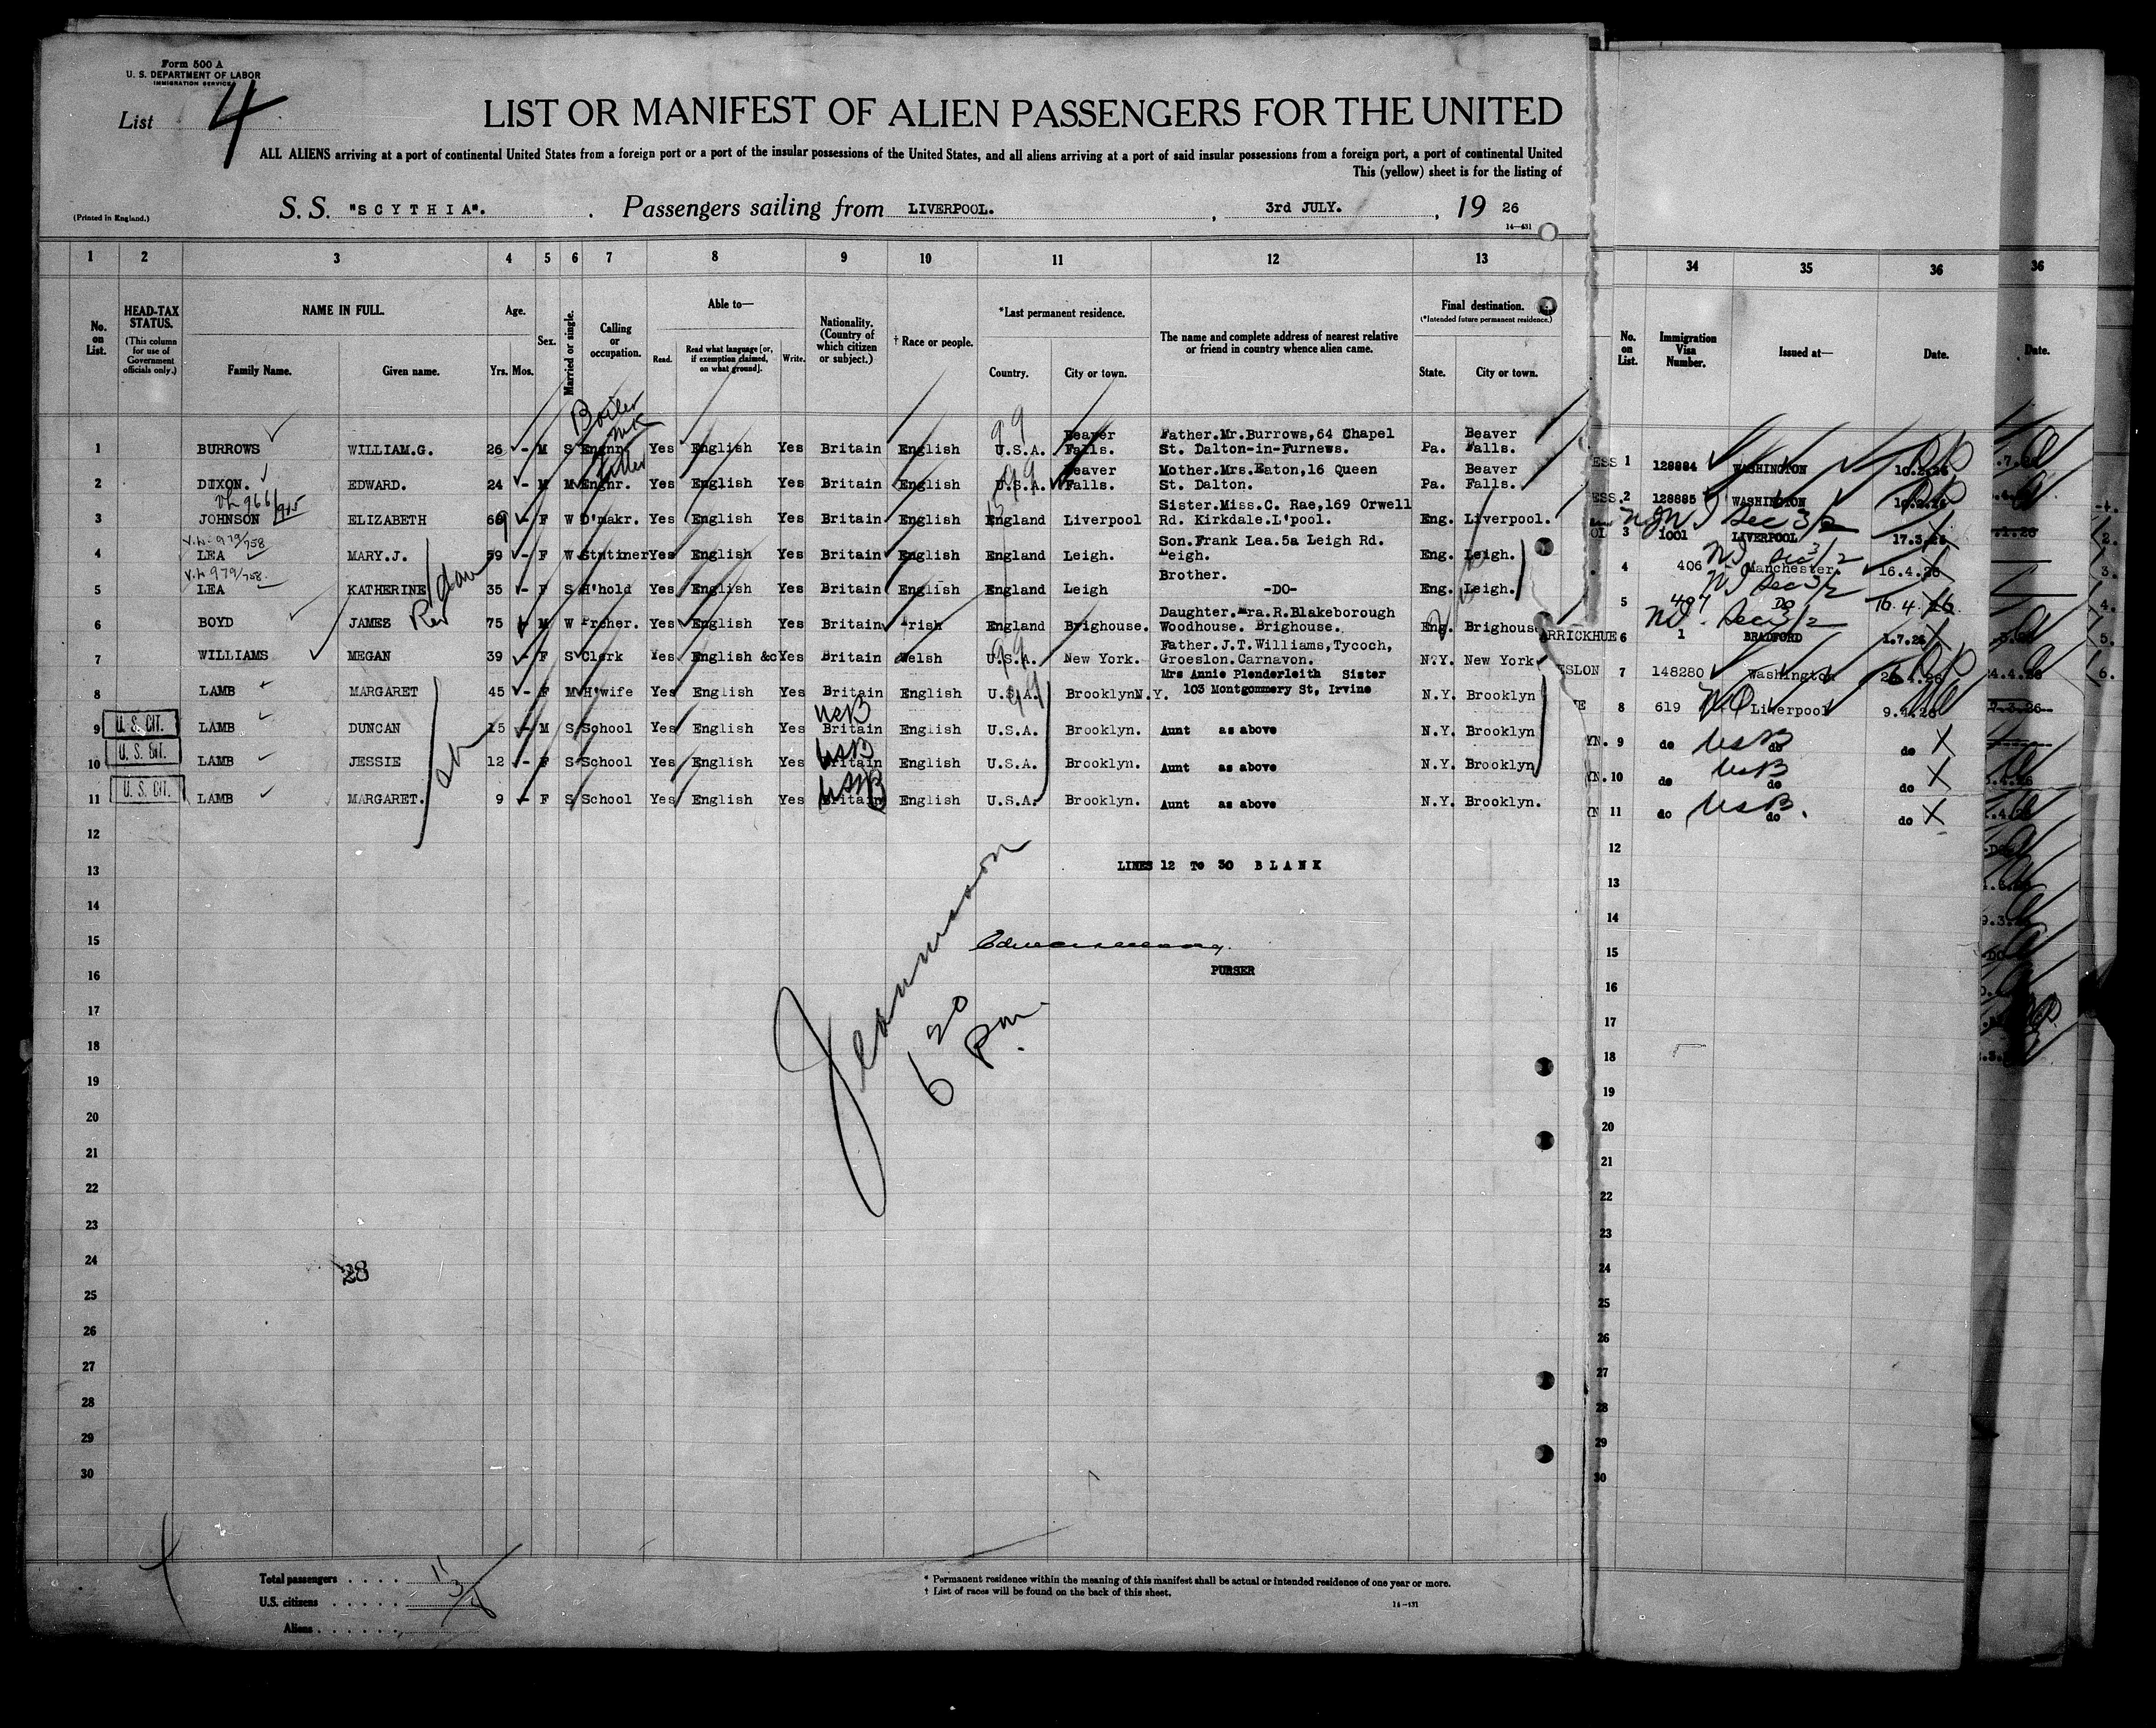 Form 500 A
U. S. DEPARTMENT OF LABOR
IMMIGRATION SERVICE
List 4
LIST OR MANIFEST OF ALIEN PASSENGERS FOR THE UNITED
ALL ALIENS arriving at a port of continental United States from a foreign port or a port of the insular possessions of the United States, and all aliens arriving at a port of said insular possessions from a foreign port, a port of continental United
This (yellow) sheet is for the listing of
(Printed in England.)
S. S. "SCYTHIA". Passengers sailing from LIVERPOOL. , 3rd JULY. , 19 26
14-431
1 2 3 4 5 6 7 8 9 10 11 12 13 34 35 36 36
No. on List.
HEAD-TAX STATUS. (This column for use of Government officials only.)
NAME IN FULL. Family Name. Given name.
Age. Yrs. Mos.
Sex.
Married or single.
Calling or occupation.
Able to— Read. Read what language [or, if exemption claimed, on what ground]. Write.
Nationality. (Country of which citizen or subject.)
† Race or people.
*Last permanent residence. Country. City or town.
The name and complete address of nearest relative or friend in country whence alien came.
Final destination. (*Intended future permanent residence.) State. City or town.
No. on List. Immigration Visa Number. Issued at— Date. Date.
Boiler mk
1 BURROWS WILLIAM.G. 26 - M S Engnr. Yes English Yes Britain English U.S.A. Beaver Falls. Father.Mr.Burrows,64 Chapel St. Dalton-in-Furnews. Pa. Beaver Falls. 1 128884 WASHINGTON 10.2.26
2 DIXON. EDWARD. 24 - M M Engnr. Yes English Yes Britain English U.S.A. Beaver Falls. Mother.Mrs.Eaton,16 Queen St. Dalton. Pa. Beaver Falls. 2 128885 WASHINGTON 10.2.26
3 JOHNSON ELIZABETH 69 - F W D'makr. Yes English Yes Britain English England Liverpool Sister.Miss.C. Rae,169 Orwell Rd. Kirkdale.L'pool. Eng. Liverpool. 3 1001 LIVERPOOL 17.3.26
V.L. 979/758
4 LEA MARY.J. 59 - F W Stntiner Yes English Yes Britain English England Leigh. Son.Frank Lea.5a Leigh Rd. Leigh. Eng. Leigh. 4 406 Manchester 16.4.26
V.L. 979/758
5 LEA KATHERINE 35 - F S H'hold Yes English Yes Britain English England Leigh Brother. -DO- Eng. Leigh. 5 407 DO 16.4.26
6 BOYD JAMES 75 - M W Frcher. Yes English Yes Britain Irish England Brighouse. Daughter.Mrs.R.Blakeborough Woodhouse. Brighouse. Eng. Brighouse 6 1 BRADFORD 1.7.26
7 WILLIAMS MEGAN 39 - F S Clerk Yes English &c Yes Britain Welsh U.S.A. New York. Father.J.T.Williams,Tycoch, Groeslon.Carnavon. N.Y. New York 7 148280 Washington 26.4.26
8 LAMB MARGARET 45 - F M H'wife Yes English Yes Britain English U.S.A. Brooklyn N.Y. Mrs Annie Plenderleith Sister 103 Montgommery St, Irvine N.Y. Brooklyn 8 619 Liverpool
U. S. CIT. 9 LAMB DUNCAN 15 - M S School Yes English Yes Britain USB English U.S.A. Brooklyn. Aunt as above N.Y. Brooklyn 9 do USB do do
U. S. CIT. 10 LAMB JESSIE 12 - F S School Yes English Yes Britain USB English U.S.A. Brooklyn. Aunt as above N.Y. Brooklyn 10 do USB do do
U. S. CIT. 11 LAMB MARGARET. 9 - F S School Yes English Yes Britain USB English U.S.A. Brooklyn. Aunt as above N.Y. Brooklyn. 11 do USB. do do
12 12
LINES 12 To 30 BLANK
13 13
14 14
15 15
16 PURSER 16
17 17
6 20 pm
18 18
19 19
20 20
21 21
22 22
23 23
24 24
28
25 25
26 26
27 27
28 28
29 29
30 30
Total passengers 11
U.S. citizens 3
Aliens 8
* Permanent residence within the meaning of this manifest shall be actual or intended residence of one year or more.
† List of races will be found on the back of this sheet.
14-431